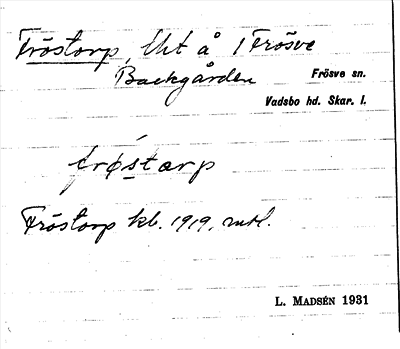 Fröstorp, Uht å 1 Frösve
Backgården
Frösve sn.
Vadsbo hd. Skar. l.
frøstarp
Fröstorp kb. 1919, mtl.
L. Madsén 1931